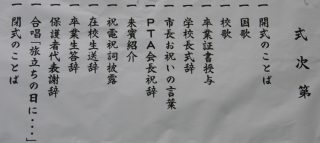 式次第
一 開式のことば
一 国歌
一 校歌
一 卒業証書授与
一 学校長式辞
一 市長お祝いの言葉
一 PTA会長祝辞
一 来賓紹介
一 祝電祝詞披露
一 在校生送辞
一 卒業生答辞
一 保護者代表謝辞
一 合唱「旅立ちの日に・・・」
一 閉式のことば